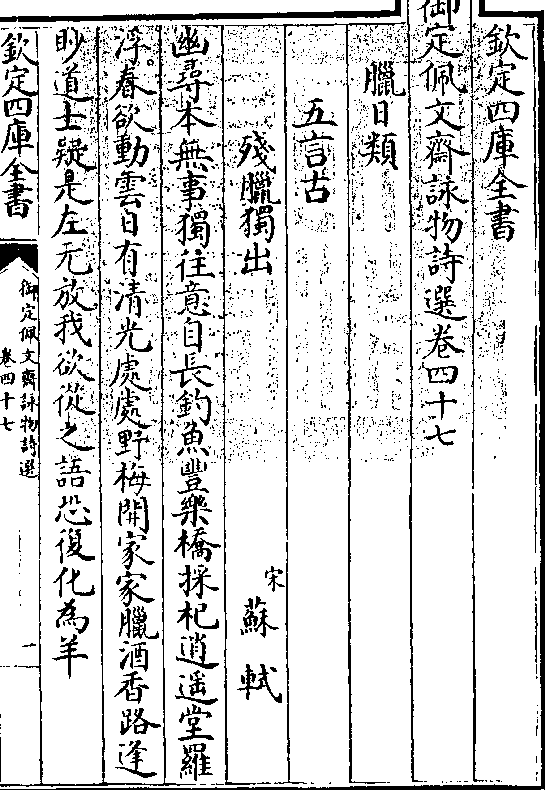 欽定四庫全書
御定佩文齋詠物詩選卷四十七
臘日類
五言古
殘臘獨出
宋
蘇軾
幽尋本無事獨往意自長釣魚豐樂橋採杞逍遙堂羅
浮春欲動雲日有清光處處野梅開家家臘酒香路逢
眇道士疑是左元放我欲從之語恐復化為羊
欽定四庫全書
御定佩文齋詠物詩選
卷四十七
一